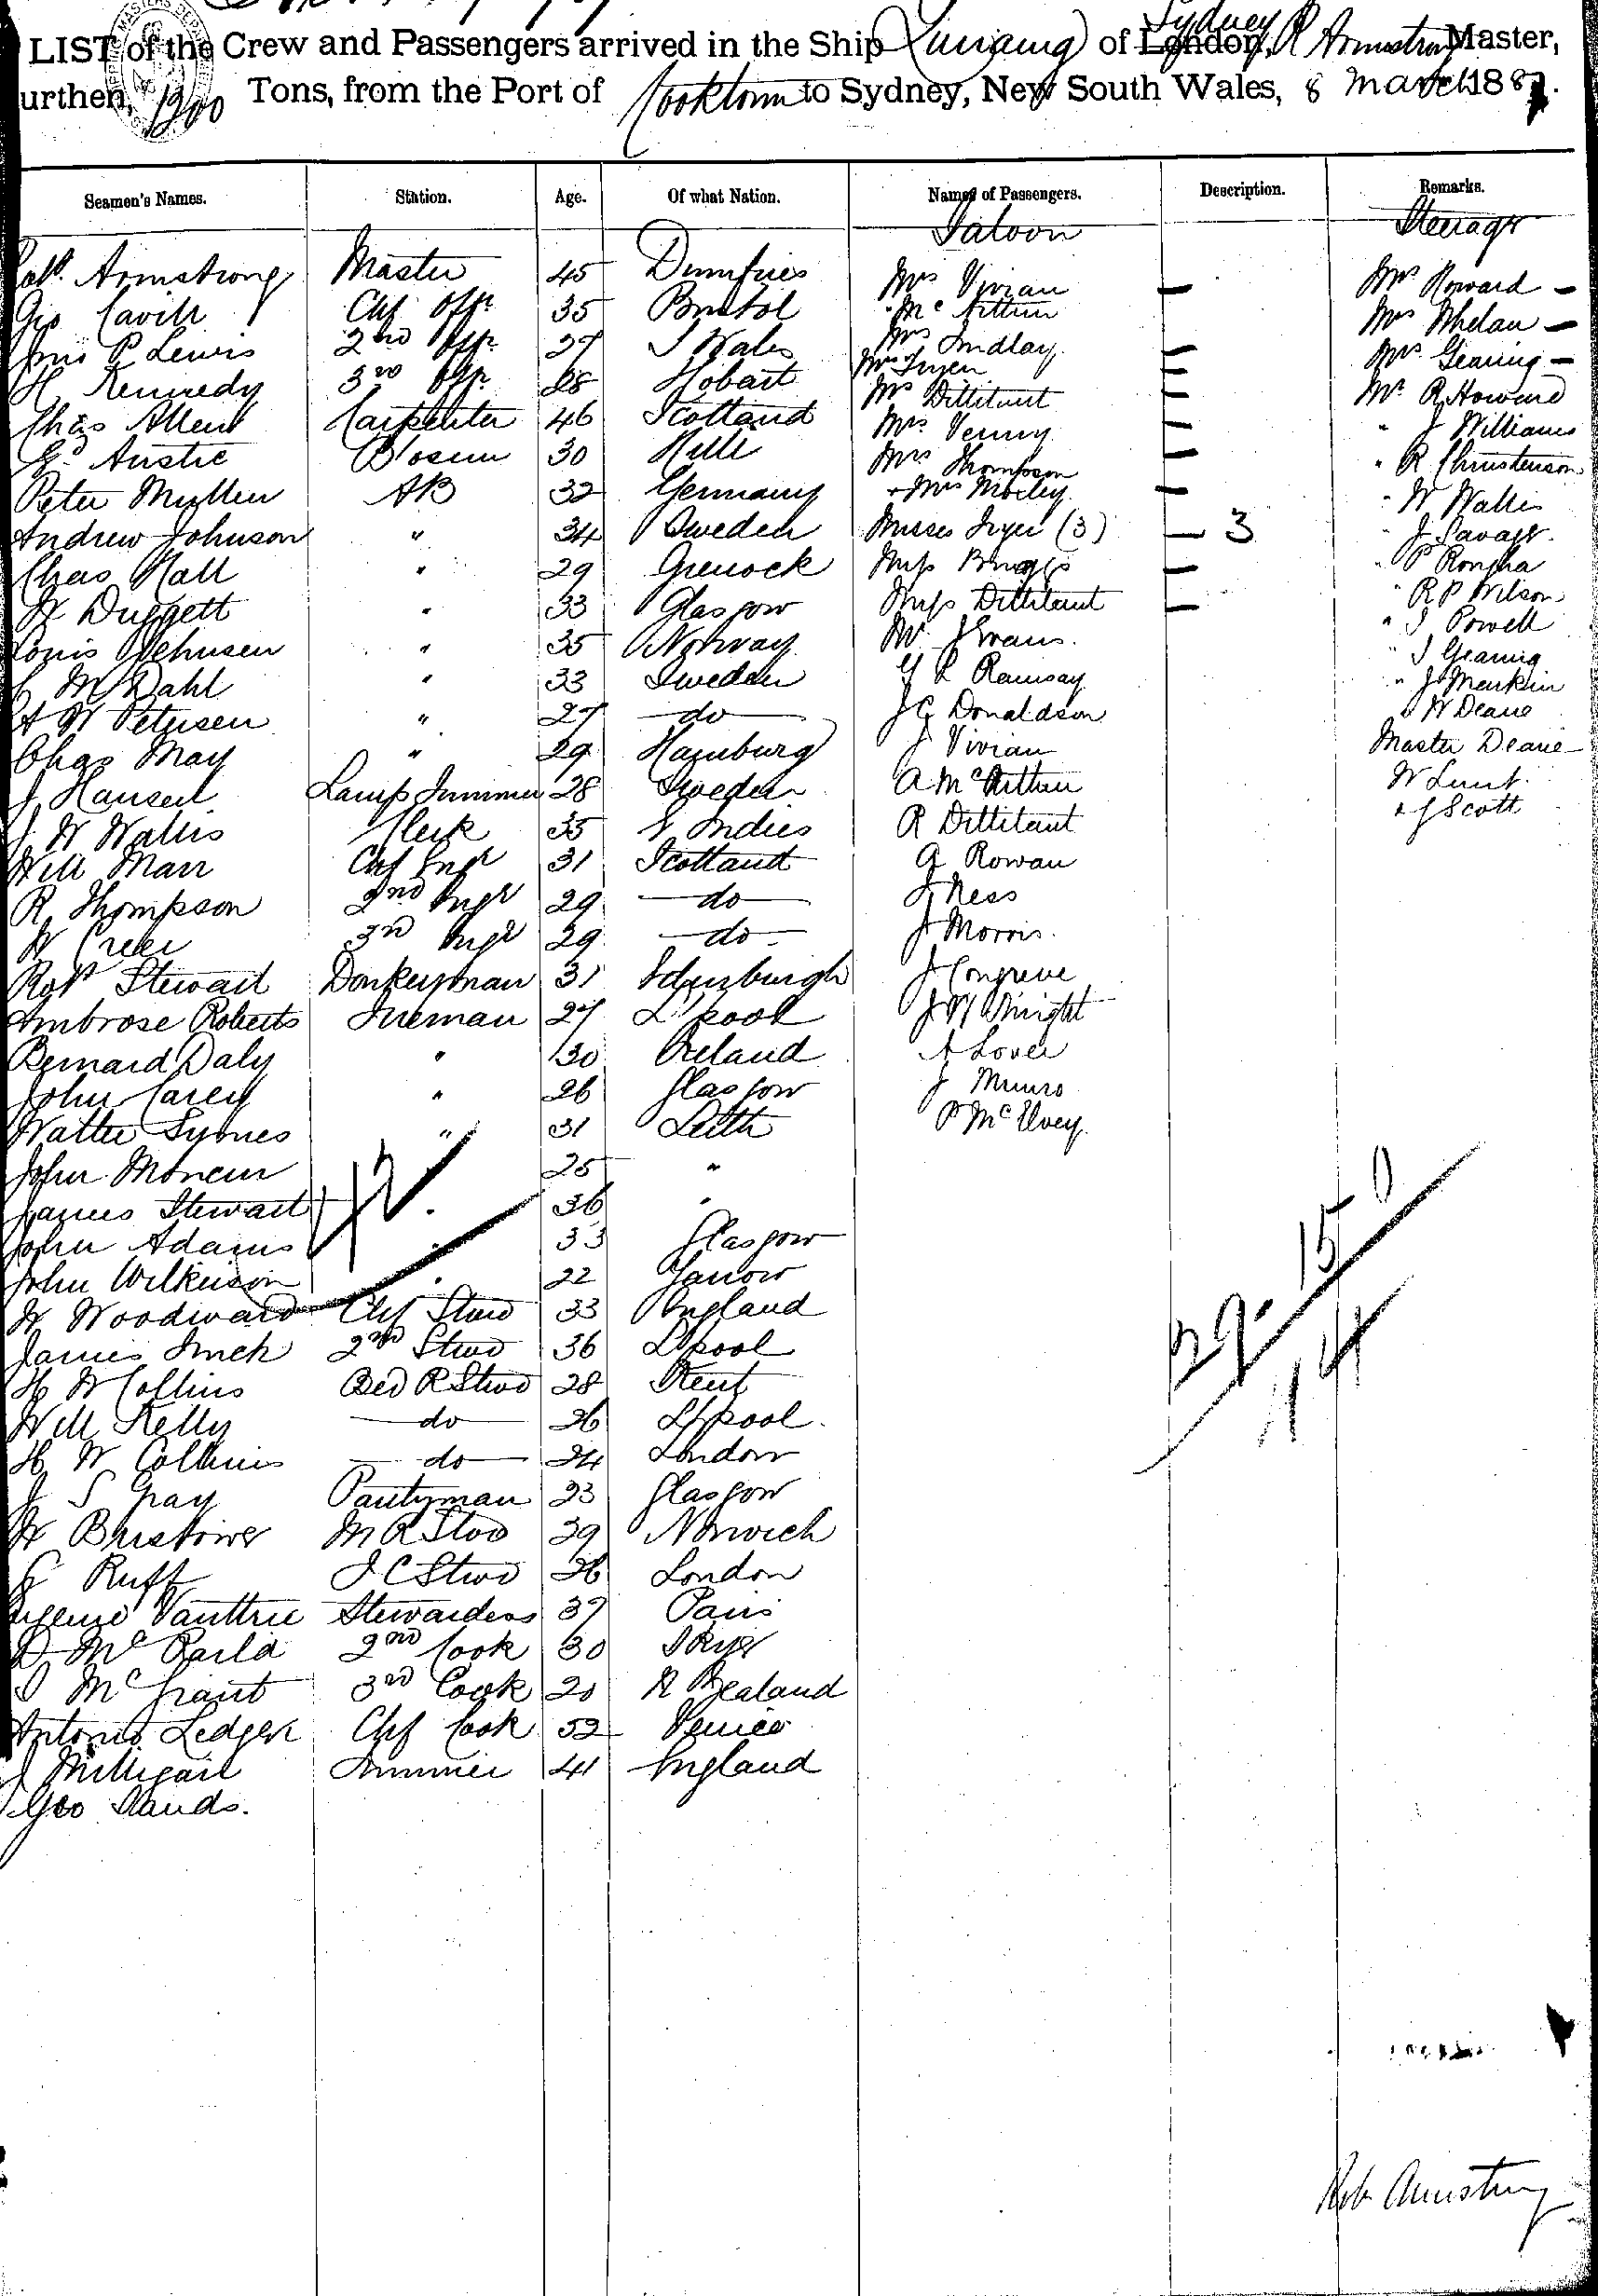 LIST of the Crew and Passengers arrived in the Ship of London, Sydney R Armstrong Master,
urthen, 1900 Tons, from the Port of Cooktown to Sydney, New South Wales, 8 March 188
Seamen's Names. Station. Age. Of what Nation. Names of Passengers. Description. Remarks.
Saloon Steerage
Robt. Armstrong Master 45 Dumfries Mrs Vivian — Mrs Howard —
Geo Cavill Chf Offr 35 Bristol Mrs Whelan —
P Lewis 2nd Offr 27 S Wales Mrs Findlay — Mrs Gearing —
H Kennedy 3rd Offr 28 Hobart Mrs Fryer — Mr R Howard
Chas Allen Carpenter 46 Scotland Mrs Dillitant — " J Williams
Austie Bosun 30 Mrs Venny — " R Christenson
Peter Mullen AB 32 Germany Mrs Thompson — " W Wallis
Andrew Johnson " 34 Sweden + Mrs Morley — " J Savage
Chas Hall " 29 Greenock Misses Fryer (3) — 3 " P
Duggett " 33 Glasgow Miss Briggs — " R P Wilson
Louis " 35 Norway Miss Dillitant — " J Powell
M Dahl " 33 Sweden Mr J Evans. " J Gearing
W Petersen " 27 do R Ramsay "
Chas May " 29 Hamburg J G Donaldson W Deane
J Hansen Lamp Trimmer 28 Sweden J Vivian Master Deane
J W Wallis Clerk 35 Indies A McArthur W Lunt
Will Marr Chf Engr 31 Scotland R Dillitant + J Scott
R Thompson 2nd Engr 29 do G Rowan
W 3rd Engr 29 do J Ness
Robt Stewart Donkeyman 31 Edinburgh J Morris.
Ambrose Roberts Fireman 27 L'pool J Congreve
Bernard Daly " 30 Ireland J W Wright
John Carey " 26 Glasgow A Lover
Walter Symes " 31 Leith J Munro
John Moncur 25 " P McElvey.
James Stewart 36 "
John Adams " 33 Glasgow
John Wilkinson " 22 Jarrow
W Woodward Chf Stwd 33 England
James Inch 2nd Stwd 36 L'pool
H W Collins Bed R Stwd 28 Kent
Will Kelly do 26 L'pool.
H W Collins do 24 London
J S Gray Pantryman 23 Glasgow
W Bristowe M R Stwd 29 Norwich
Ruff Stwd 26 London
Stewardess 37 Paris
D Mc 2nd Cook 30 Skye
J McGrant 3rd Cook 20 N Zealand
Antonio Chf Cook 52 Venice
J Milligan Trimmer 41 England
Geo Sands.
Rob Armstrong